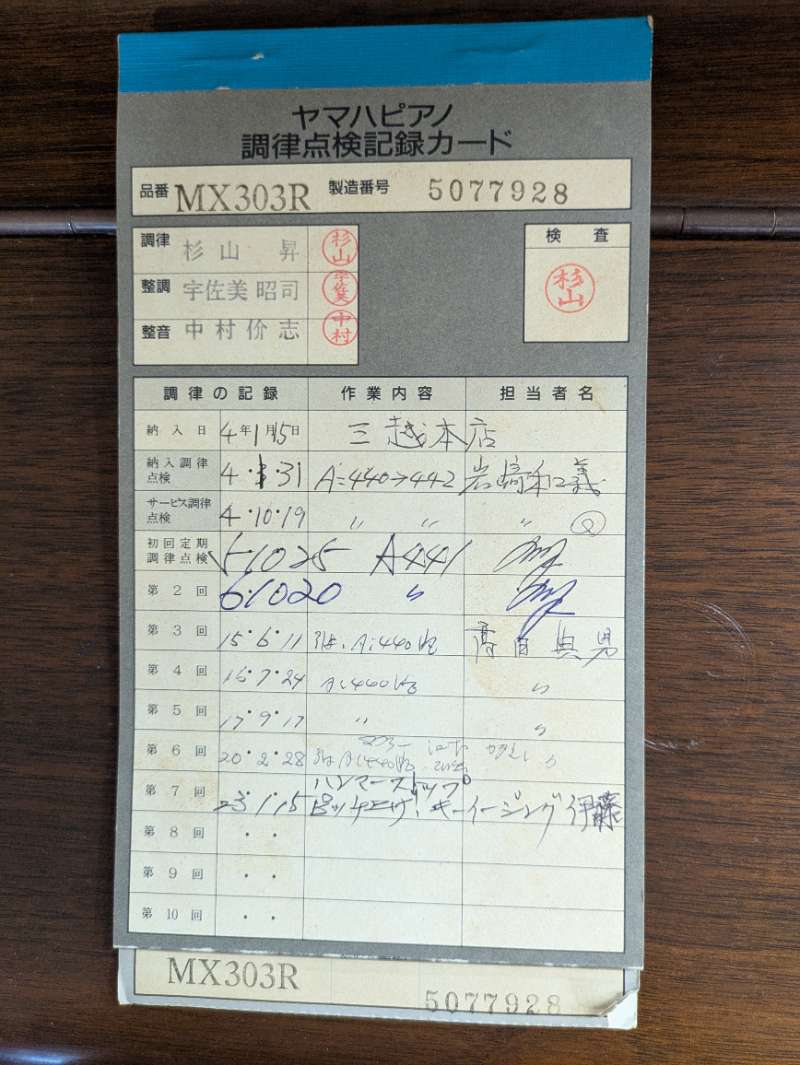 ヤマハピアノ
調律点検記録カード
品番 MX303R 製造番号 5077928
調律 杉山 昇 杉山
検査
整調 宇佐美昭司 宇佐美
杉山
整音 中村价志 中村
調律の記録 作業内容 担当者名
納入日 4年1月15日 三越本店
納入調律点検 4・1・31 A=440→442 岩崎和義
サービス調律点検 4・10・19 〃 〃 〃
初回定期調律点検 5・10・25 A441
第2回 6・10・20 〃
第3回 15・6・11 A:440Hz
第4回 16・7・24 A:440Hz 〃
第5回 17・9・17 〃 〃
第6回 20・2・28 A:440Hz 〃
ハンマーストップ
第7回 23・1・15 ピッチ キーイージング 伊藤
第8回 ・ ・
第9回 ・ ・
第10回 ・ ・
MX303R
5077928